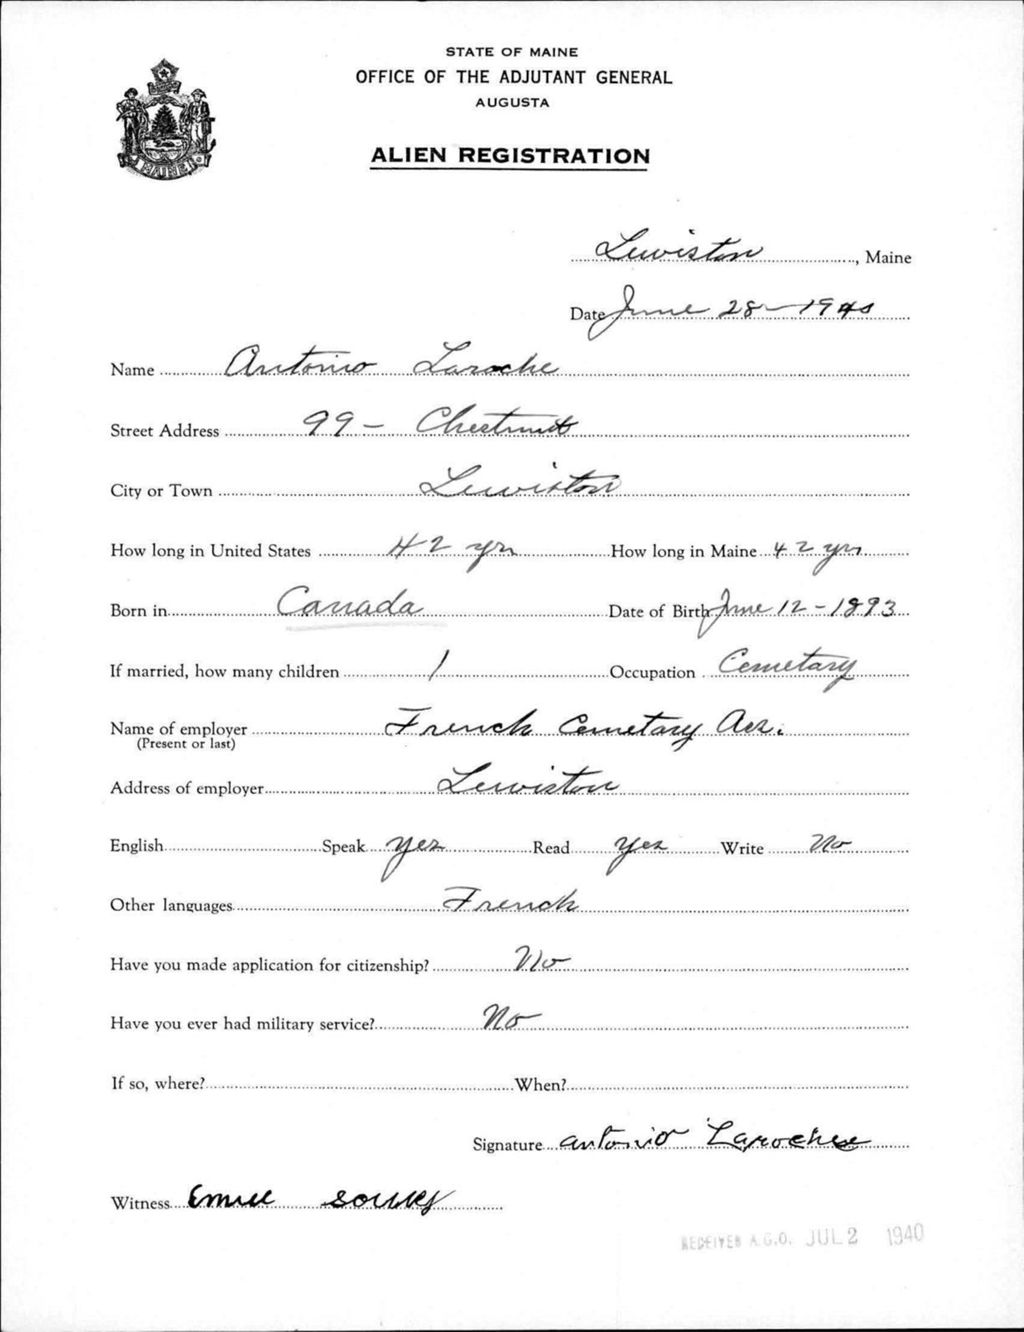 STATE OF MAINE
OFFICE OF THE ADJUTANT GENERAL
AUGUSTA
ALIEN REGISTRATION
MAINE
Lewiston, Maine
Date June 28 - 1940
Name Antonio Laroche
Street Address 99 - Chestnut
City or Town Lewiston
How long in United States 42 yrs How long in Maine 42 yrs
Born in Canada Date of Birth June 12 - 1893
If married, how many children 1 Occupation Cemetary
Name of employer French Cemetary
(Present or last)
Address of employer Lewiston
English Speak Yes Read Yes Write No
Other languages French
Have you made application for citizenship? No
Have you ever had military service? No
If so, where? When?
Signature Antonio Laroche
Witness Emile
RECEIVED A.G.O. JUL 2 1940